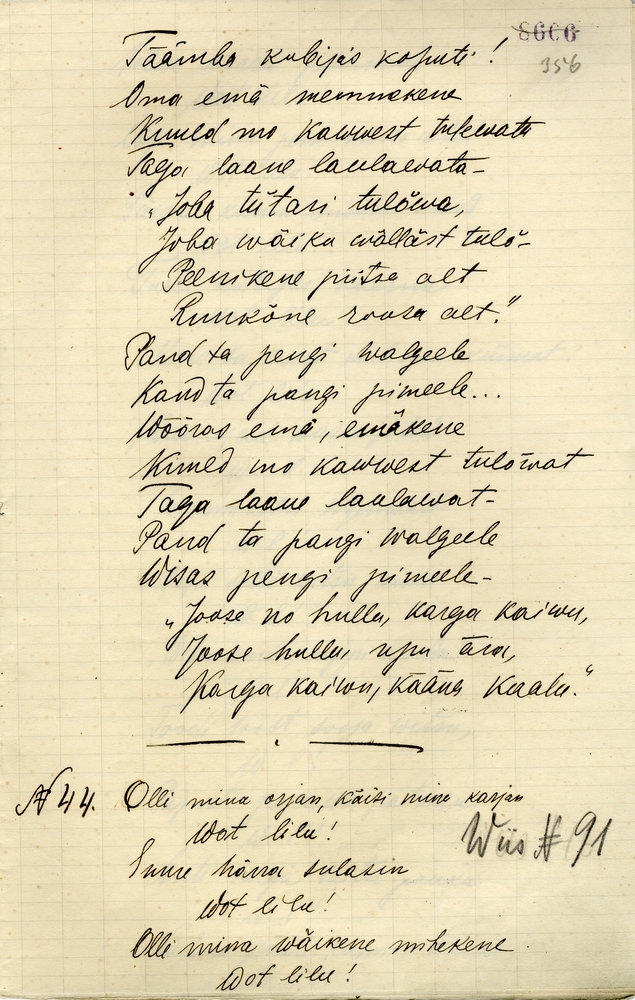 8606
356
Täämba kubijas koputi!
Oma emä memmekene
Kuuld mo kawwest tulewata
Taga laane laulawata -
"Joba tütari tulõwa,
Joba wäiku wälläst tulõ -
Peenikene piitsa alt
Ruukõne roosa alt."
Pand ta pengi walgeele
Kand ta pangi pimeele...
Wõõras emä, emäkene
Kuuled mo kawwest tulõwat
Taga laane laulawat -
Pand ta pangi walgeele
Wisas pengi pimeele -
"Joose no hullu, karga kaiwu,
Joose hullu, upu ära,
Karga kaiwu, kääna kaala."
№ 44. Olli mina orjan, käisi mina karjan
Wot lilu!
Wiis # 91
Suure härra sulasin
Wot lilu!
Olli mina wäikene mihekene
Wot lilu!